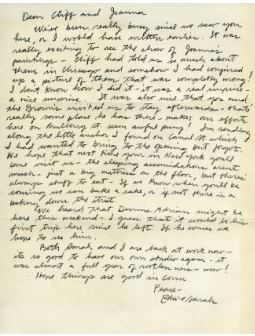 Dear Cliff and Joanna
We've been really busy since we saw you
here, or I would have written earlier. It was
really exciting to see the show of Joanna's
paintings - Cliff had told us so much about
them in Chicago and somehow I had conjured
up a picture of them that was completely wrong!
I don't know how I did it - it was a real surprise -
a nice surprise. It was also nice that you and
the Browns invited us to stay afterwards - that's
really some place he has there - makes our efforts
here on building it seem awful puny. I am sending
along the little anchor I found on Canal St. which
I had wanted to bring to the opening but forgot.
We hope that next time you're in New York you'll
come visit us - the sleeping accommodations aren't
much - just a big mattress on the floor, but there's
always stuff to eat - if we know when you'll be
coming we can bake a cake, or if not there is a
bakery down the street.
We heard that Dennis Adrian might be
here this weekend - I guess that it would be his
first trip here since he left. If he comes we
hope to see him.
Both Sarah and I are back at work now -
its so good to have our own studio again - it
was almost a full year of restlessness - wow!
Hope things are good in Conn.
Peace -
Ed + Sarah